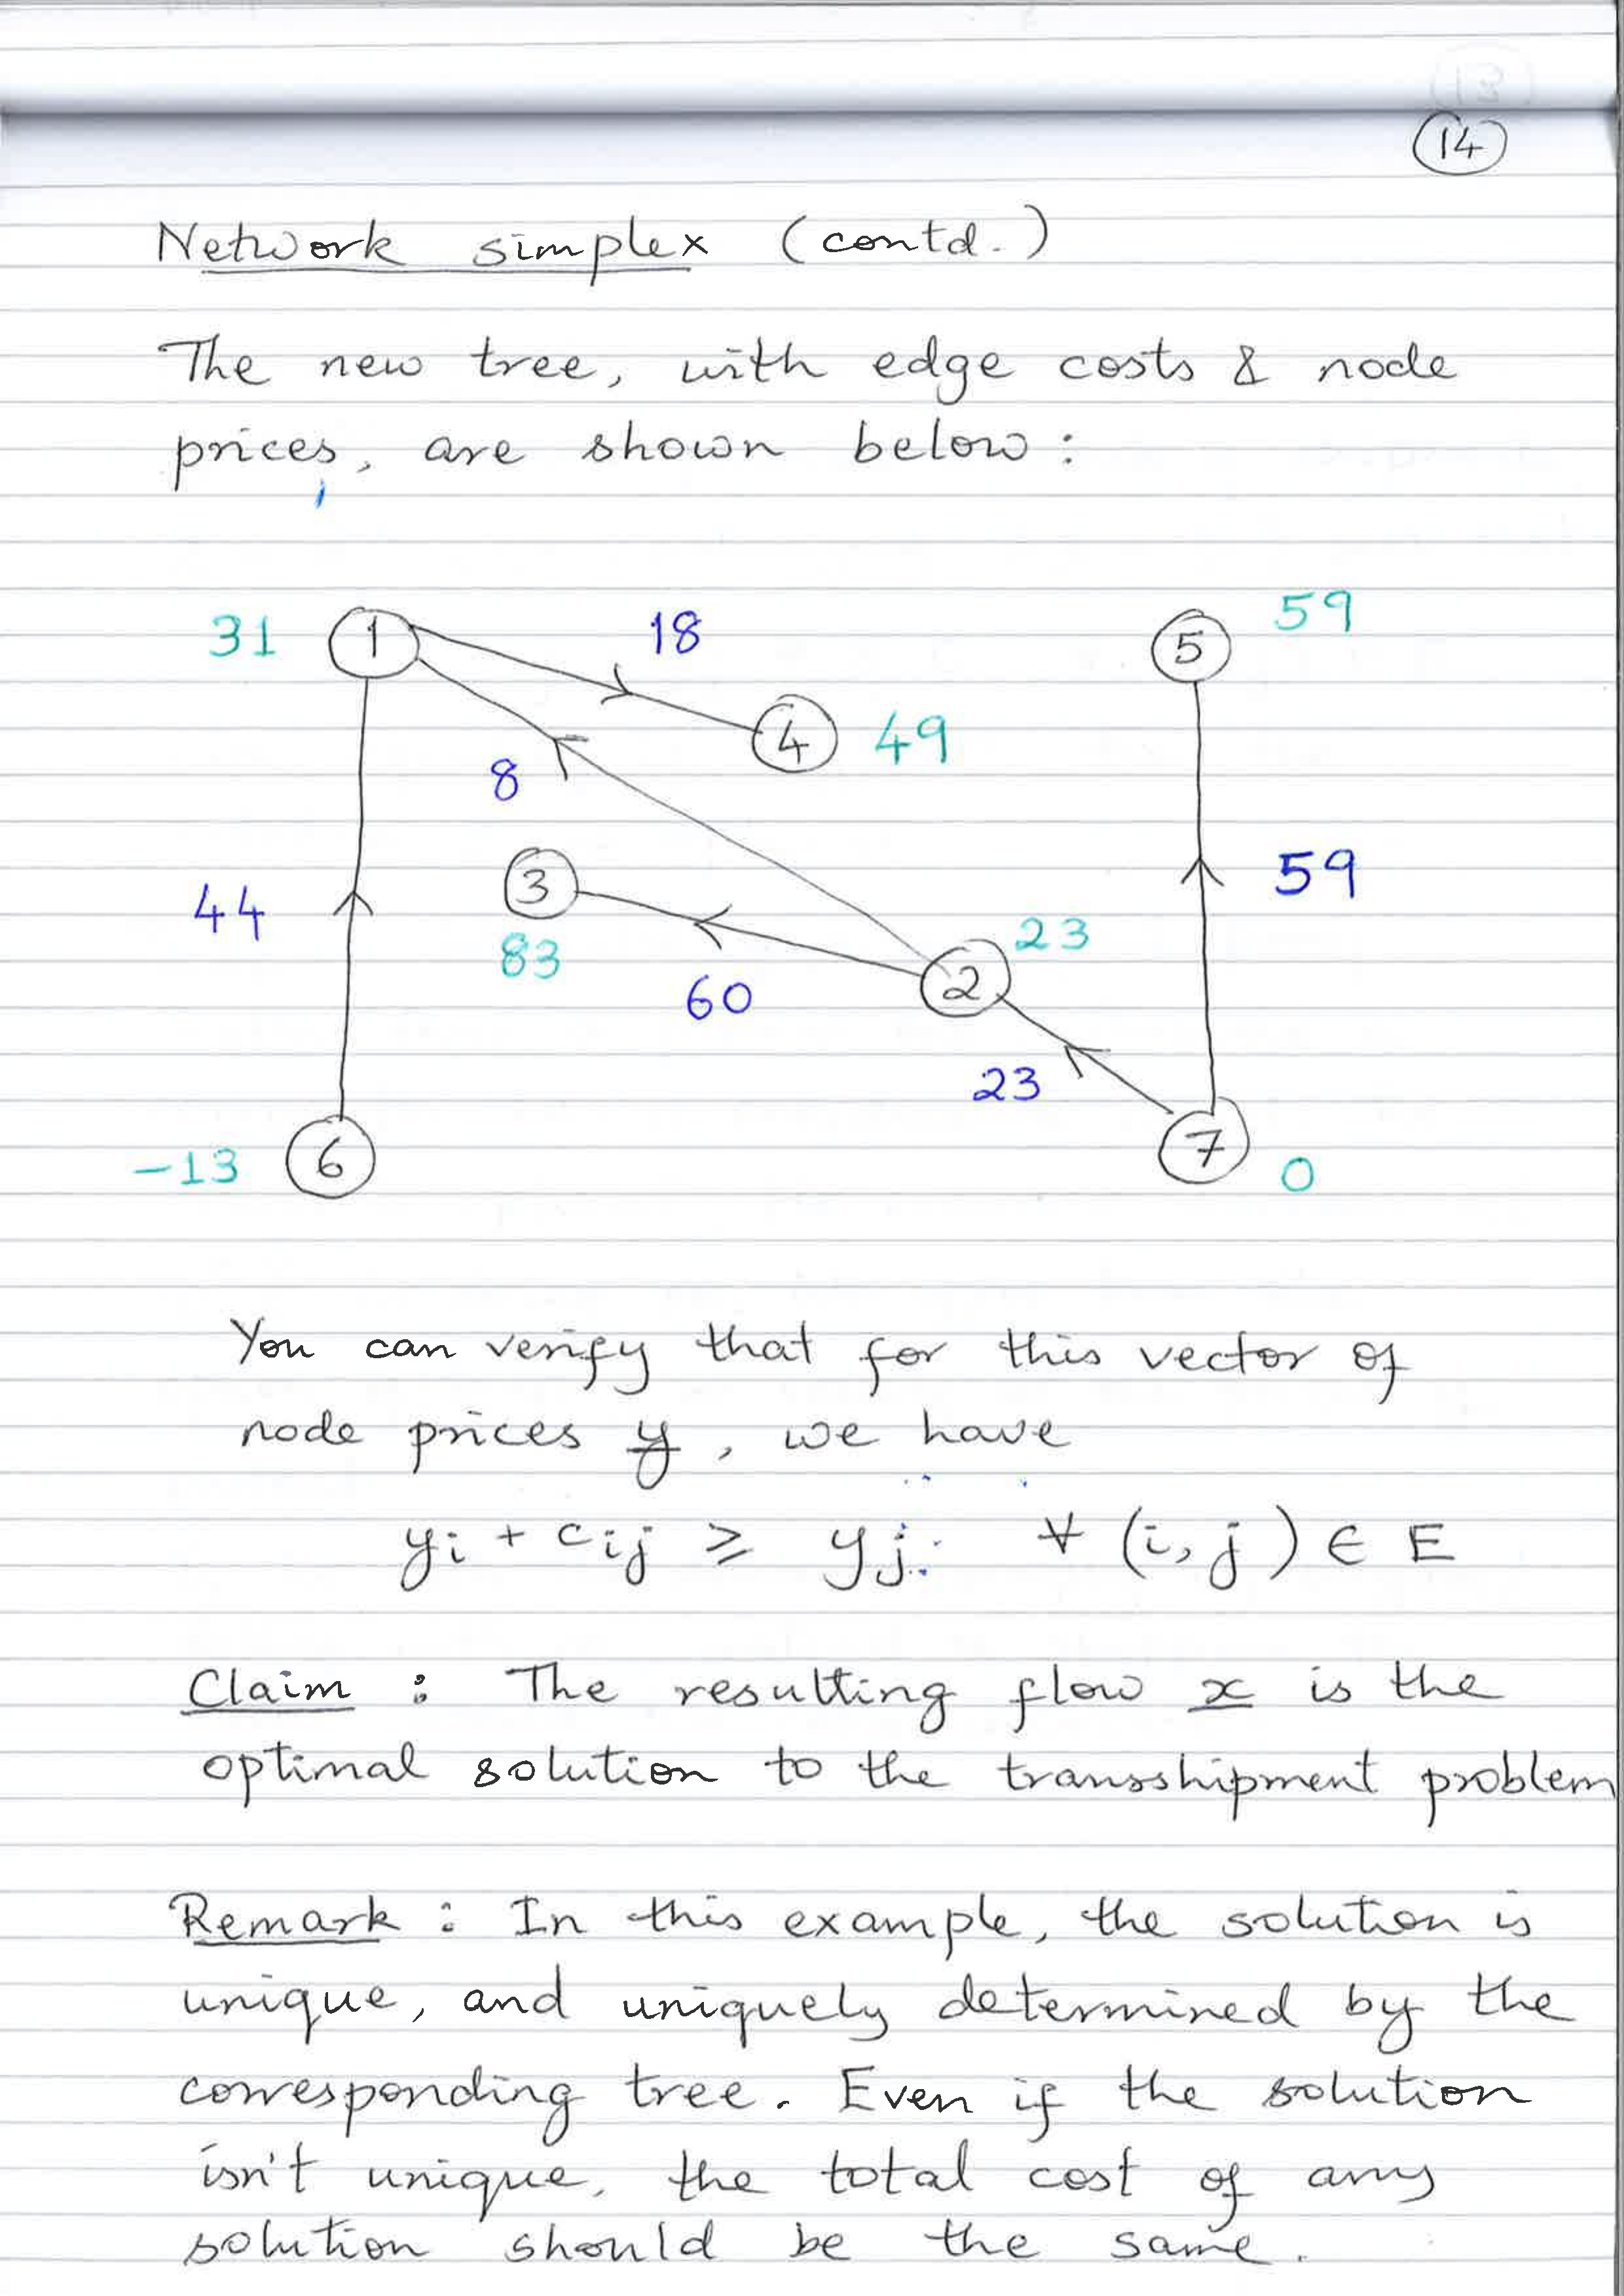 14
Network simplex (contd.)
The new tree, with edge costs & node
prices, are shown below:
31 1 18 5 59
4 49
8
3 44 59
83 60 2 23
23
-13 6 7 0
You can verify that for this vector of
node prices y, we have
yi + cij ≥ yj ∀ (i,j) ∈ E
Claim : The resulting flow x is the
optimal solution to the transshipment problem
Remark : In this example, the solution is
unique, and uniquely determined by the
corresponding tree. Even if the solution
isn't unique, the total cost of any
solution should be the same.